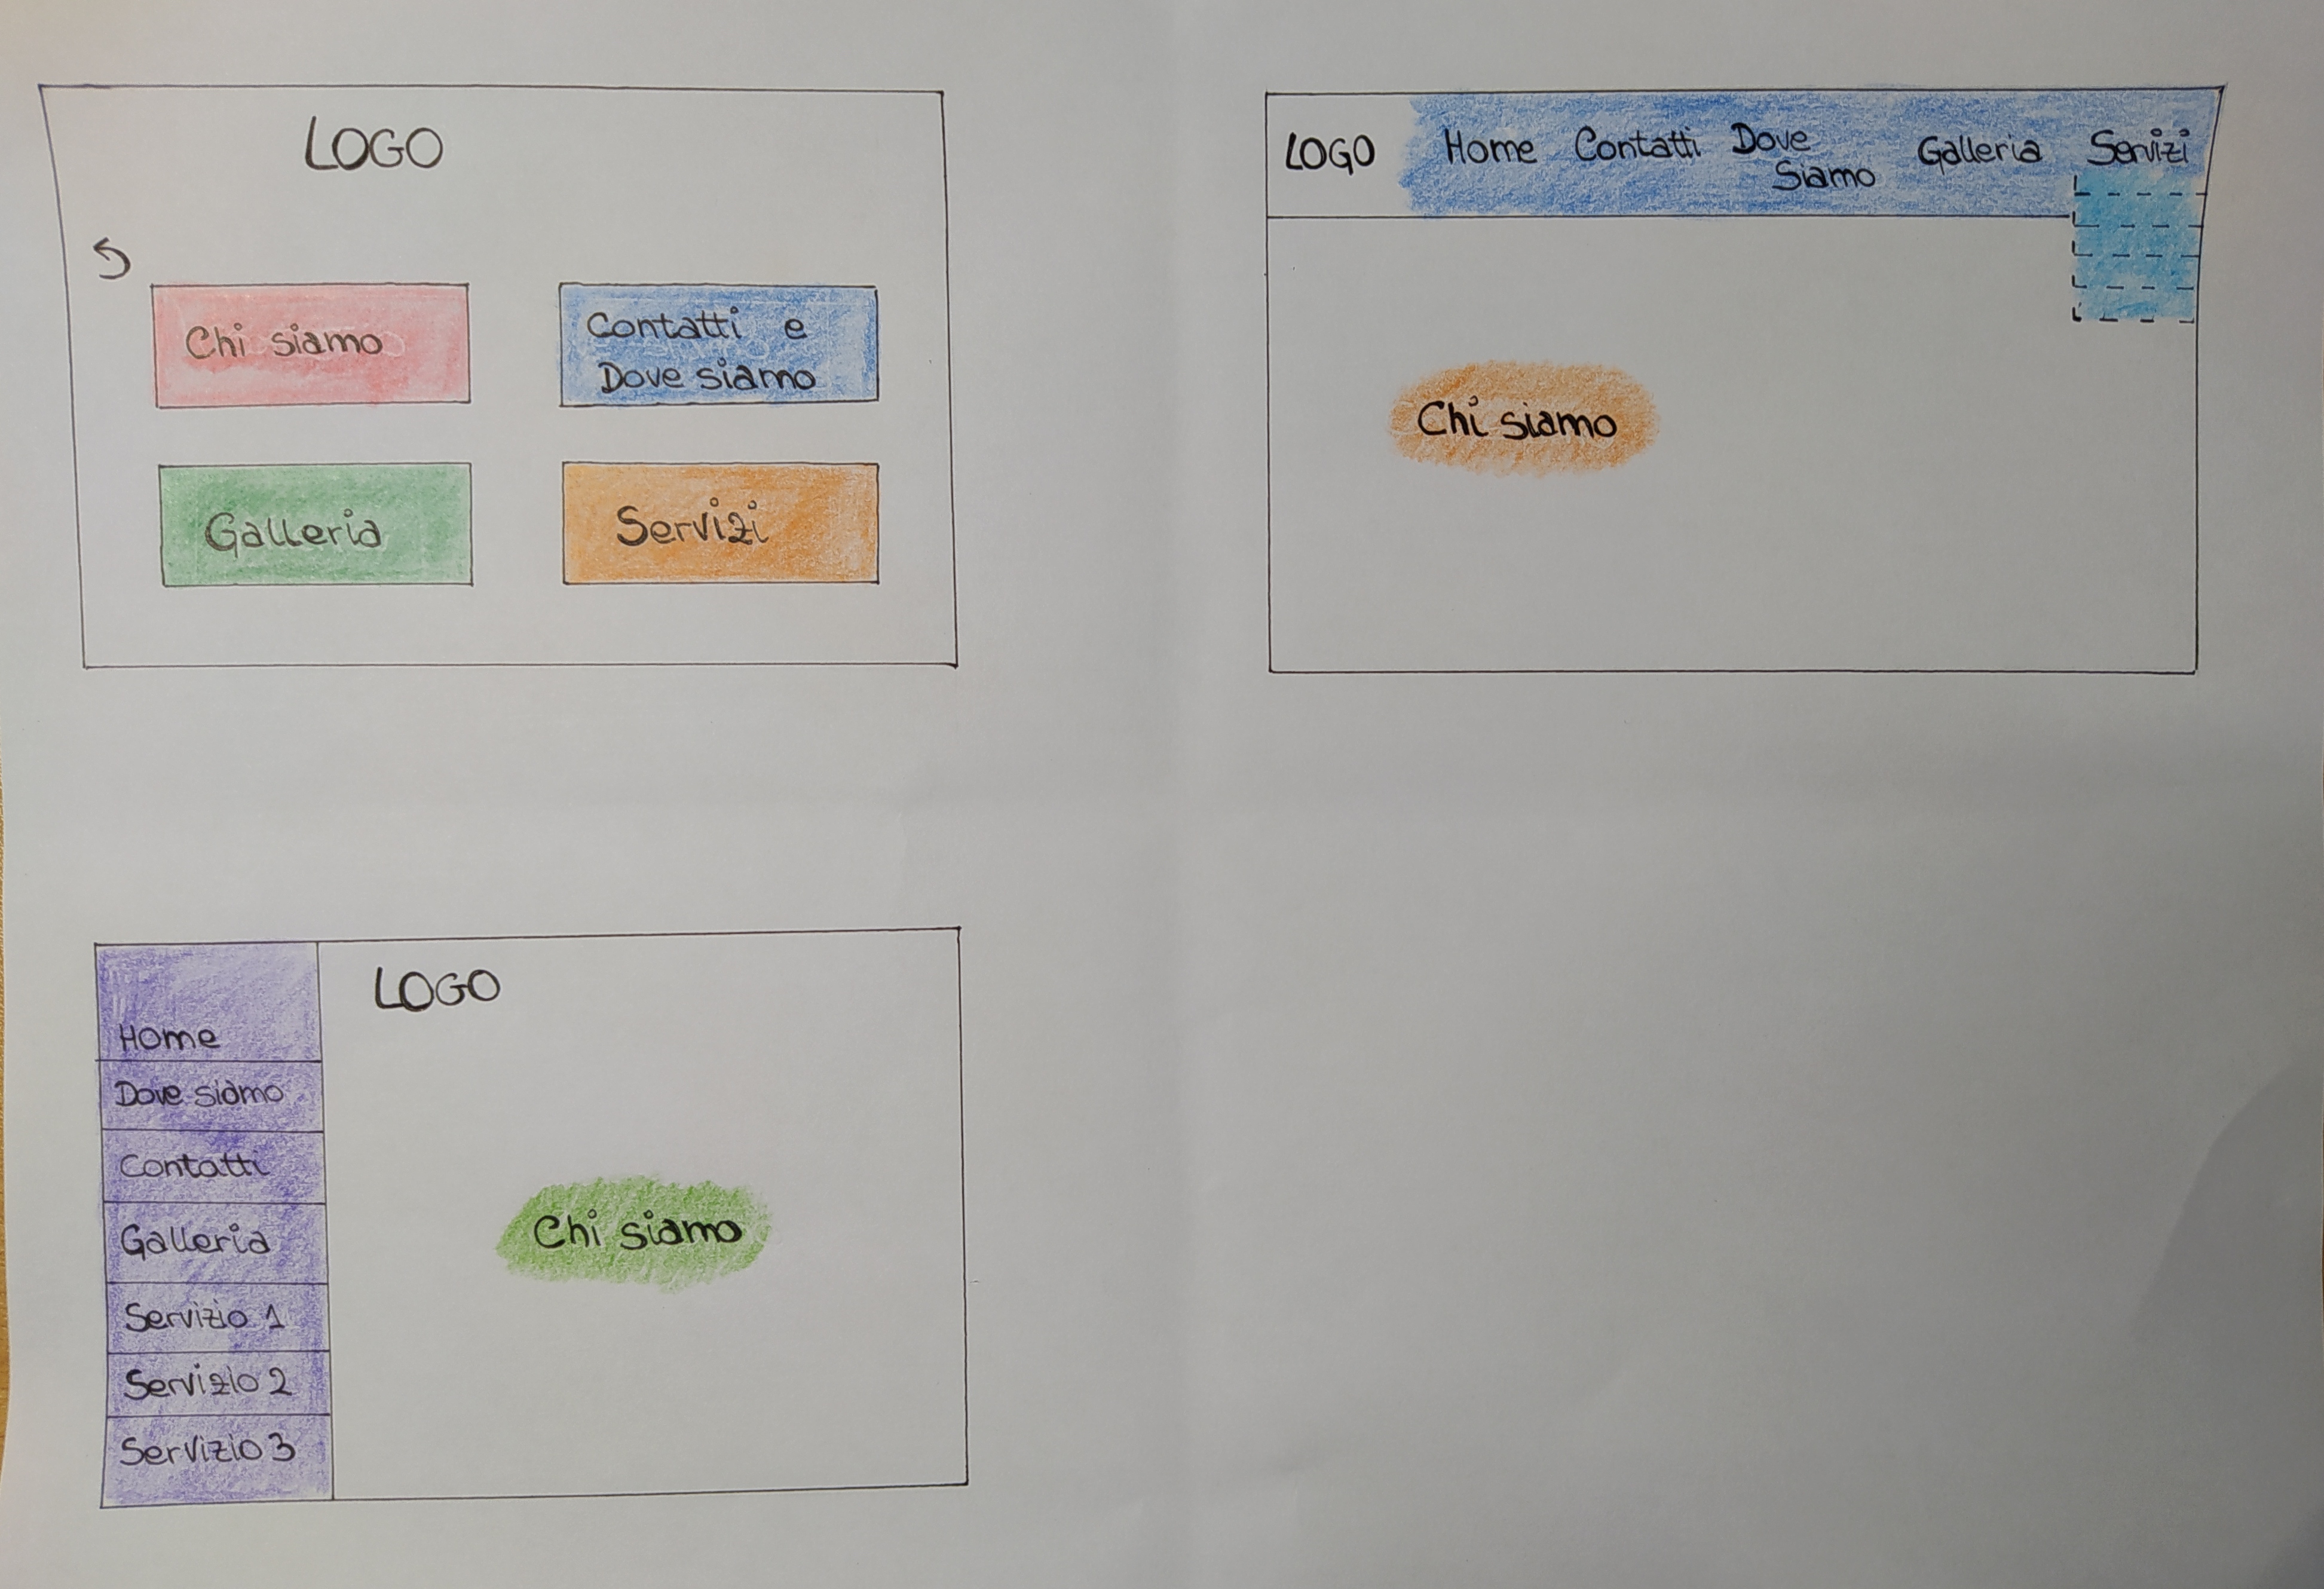 LOGO
Chi siamo
Contatti e
Dove siamo
Galleria
Servizi
LOGO
Home
Contatti
Dove
Siamo
Galleria
Servizi
Chi siamo
Home
Dove siamo
Contatti
Galleria
Servizio 1
Servizio 2
Servizio 3
LOGO
Chi siamo